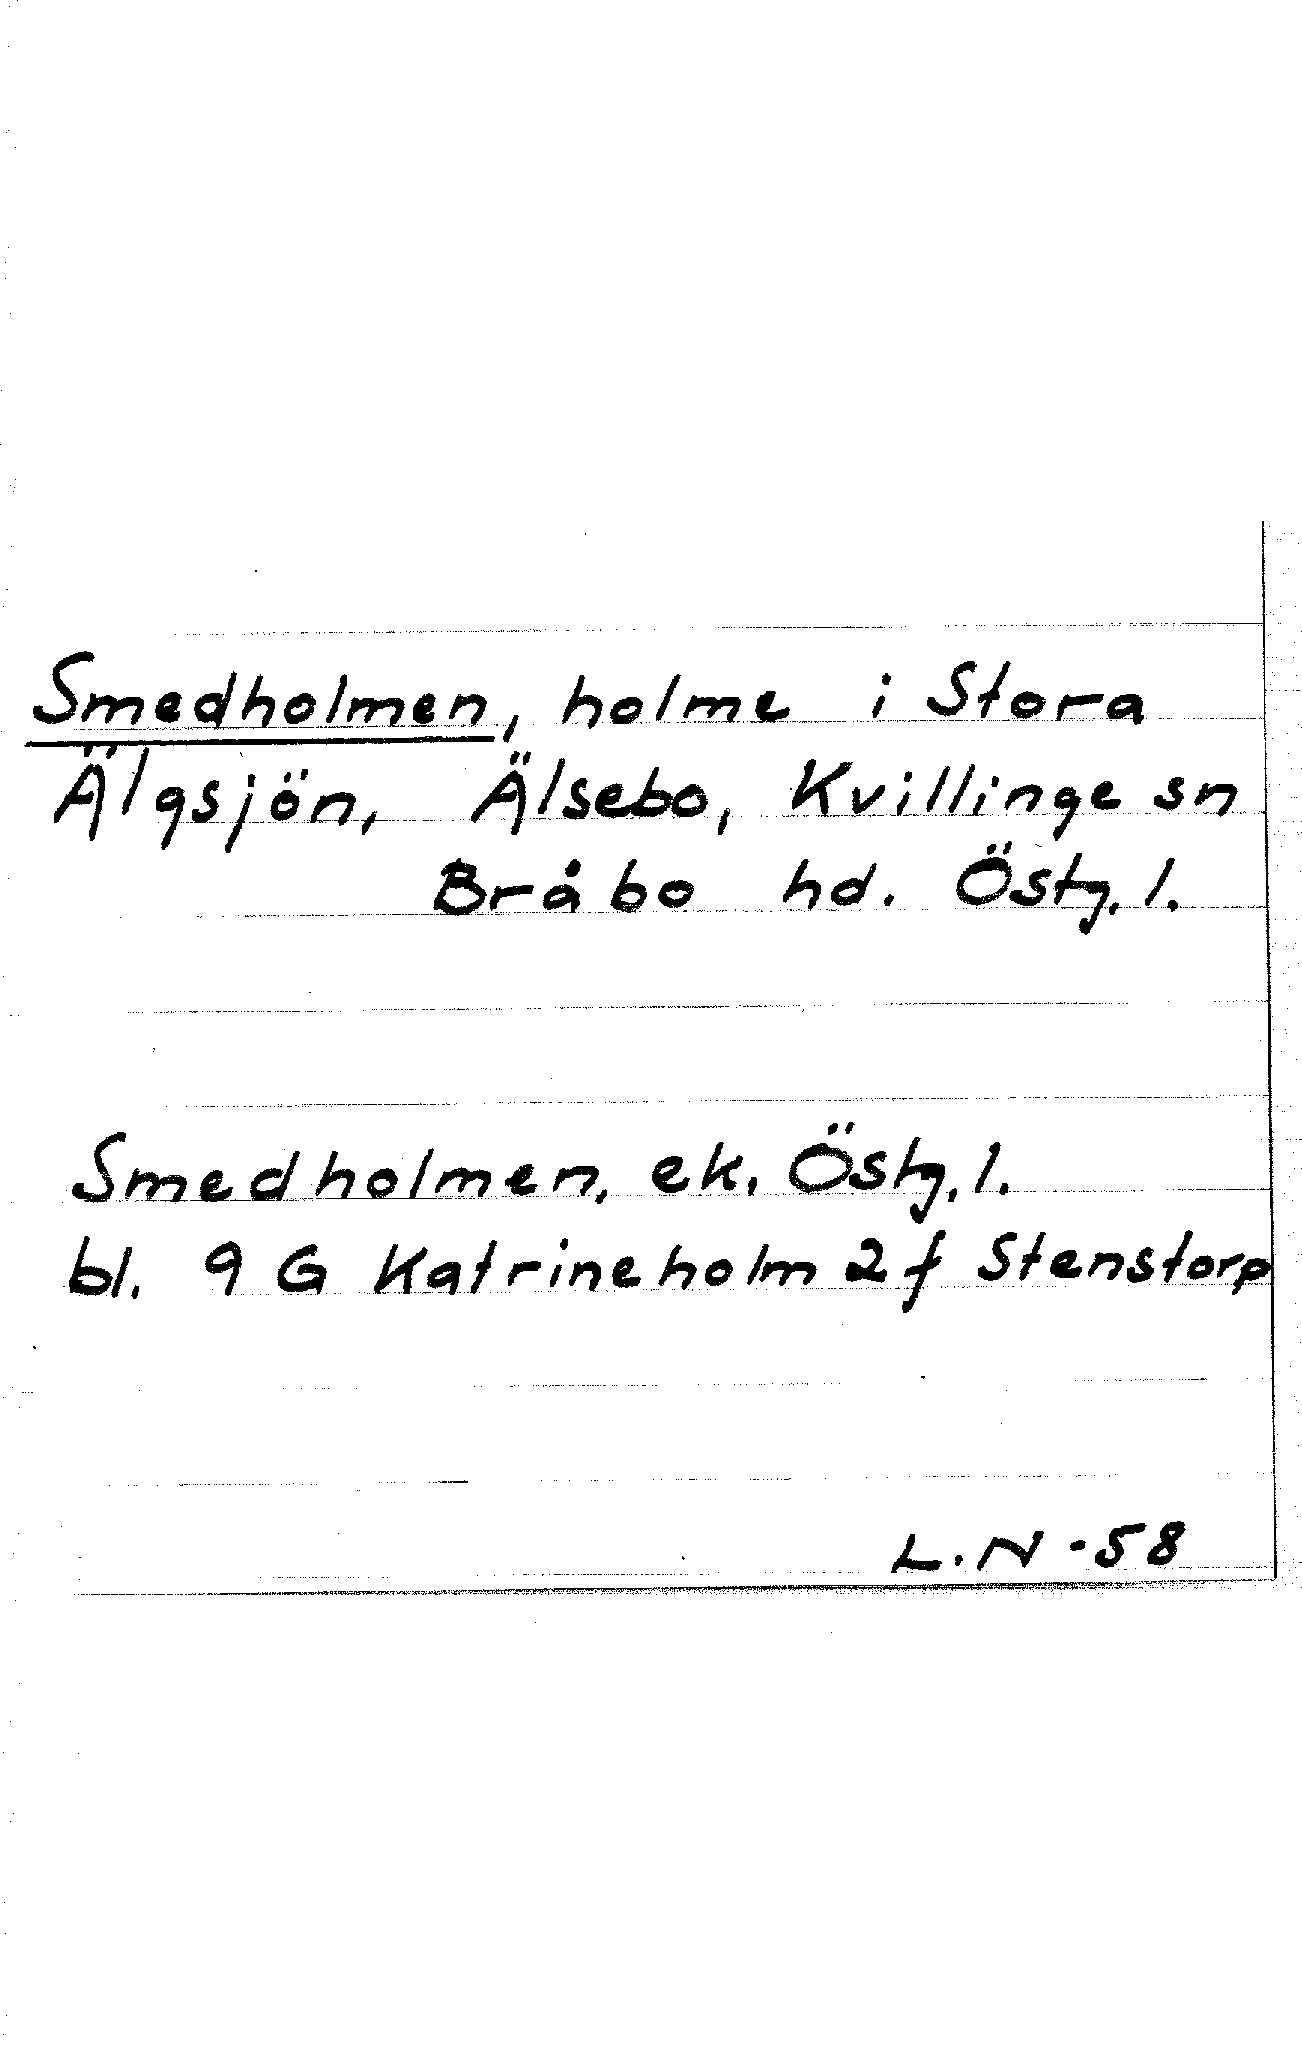 Smedholmen, holme i Stora
Älgsjön, Älsebo, Kvillinge sn
Bråbo hd. Östg. l.
Smedholmen, ek. Östg. l.
bl. 9 G Katrineholm 2 f Stenstorp
L. N -58